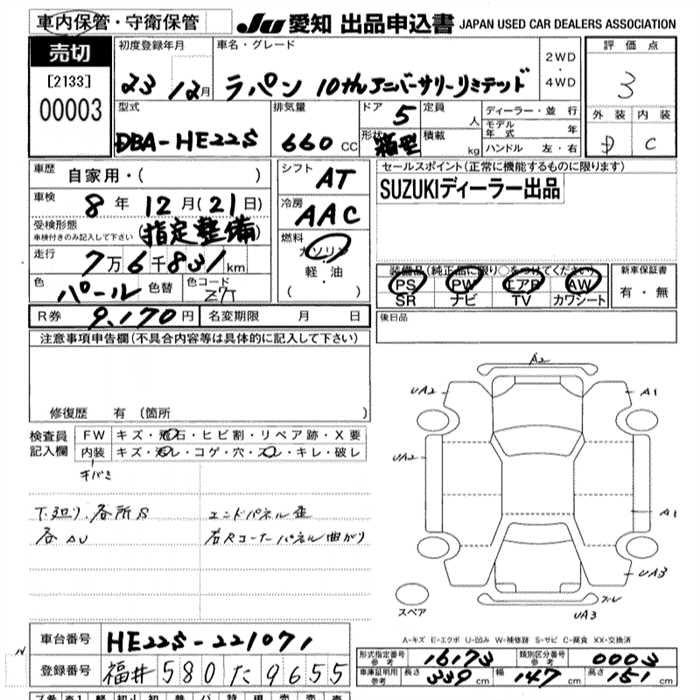 車内保管・守衛保管
JU 愛知 出品申込書 JAPAN USED CAR DEALERS ASSOCIATION
売切
[2133]
00003
初度登録年月
23 12月
車名・グレード
ラパン 10thアニバーサリーリミテッド
2WD
・
4WD
評価点
3
外装 内装
D C
型式
DBA-HE22S
排気量
660 CC
ドア 5
形状 箱型
定員 人
積載 kg
ディーラー・並行
モデル年式 年
ハンドル 左・右
車歴 自家用・( )
車検 8年 12月(21日)
受検形態
車検付きのみ記入して下さい
(指定整備)
走行 7万6千831km
色 パール 色替 色コード Z7T
R券 9,170円 名変期限 月 日
シフト AT
冷房 AAC
燃料
ガソリン
軽・油
( ・ )
セールスポイント(正常に機能するものに限ります)
SUZUKIディーラー出品
装備品(純正品に限り○をつけてください)
PS PW エアB AW
SR ナビ TV カワシート
新車保証書
有・無
後日品
注意事項申告欄(不具合内容等は具体的に記入して下さい)
修復歴 有(箇所
検査員記入欄
FW キズ・飛石・ヒビ割・リペア跡・X要
内装 キズ・汚レ・コゲ・穴・スレ・キレ・破レ
下廻り、各所S
各AU
エンドパネル歪
右Rコーナーパネル曲がり
A2
UA2
A1
UA2
A1
UA3
UA3
スペア
A=キズ E=エクボ U=凹み W=補修跡 S=サビ C=腐食 XX=交換済
車台番号 HE22S-221071
登録番号 福井 580 た 9655
形式指定番号 参考 16173
類別区分番号 参考 0003
車庫証明用 参考 長さ 339cm 幅 147cm 高さ 151cm